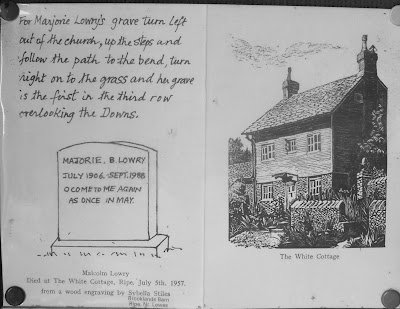 For Marjorie Lowry's grave turn left
out of the church, up the steps and
follow the path to the bend, turn
right on to the grass and her grave
is the first in the third row
overlooking the Downs.
MARJORIE. B. LOWRY
JULY 1906. SEPT. 1988
O COME TO ME AGAIN
AS ONCE IN MAY.
Malcolm Lowry
Died at The White Cottage, Ripe, July 5th. 1957.
from a wood engraving by Sybella Stiles
Brooklands Barn
Ripe, Nr. Lewes
The White Cottage